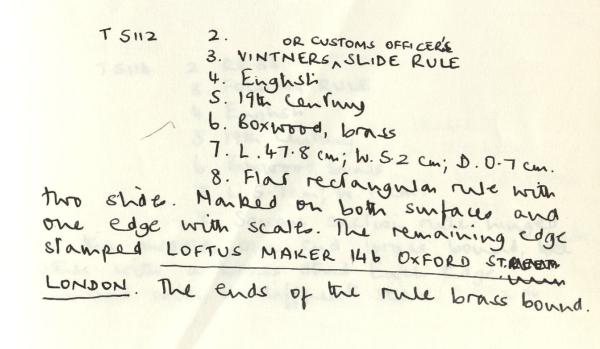 T 5112 2.
OR CUSTOMS OFFICER'S
3. VINTNERS ^ SLIDE RULE
4. English
5. 19th Century
6. Boxwood, brass
7. L. 47.8 cm; W. 5.2 cm; D. 0.7 cm.
8. Flat rectangular rule with
two slides. Marked on both surfaces and
one edge with scales. The remaining edge
stamped LOFTUS MAKER 146 OXFORD ST.
LONDON. The ends of the rule brass bound.